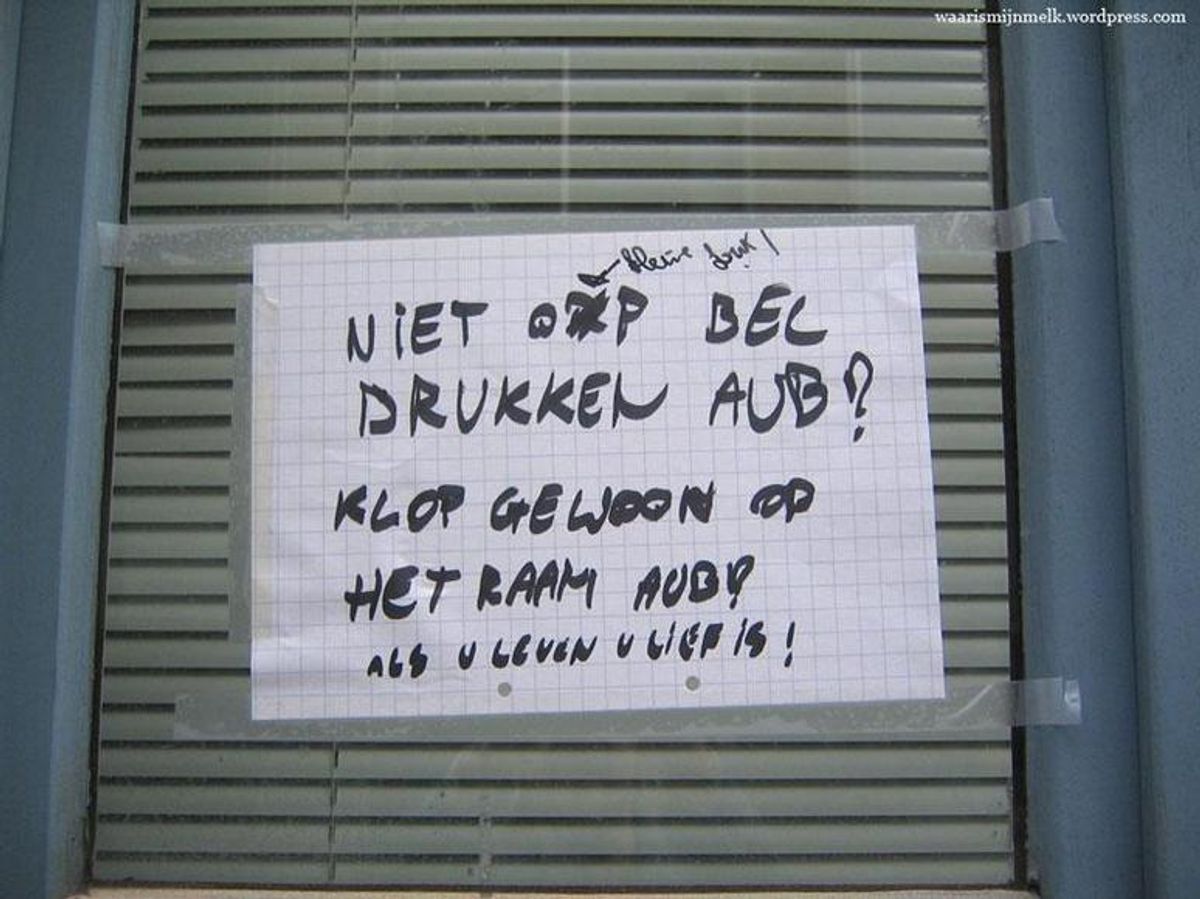 waarismijnmelk.wordpress.com
kleine fout!
NiET OP BEL
DRUKKEN AUB?
KLOP GEWOON OP
HET RAAM AUB?
ALS U LEVEN U LIEF iS!